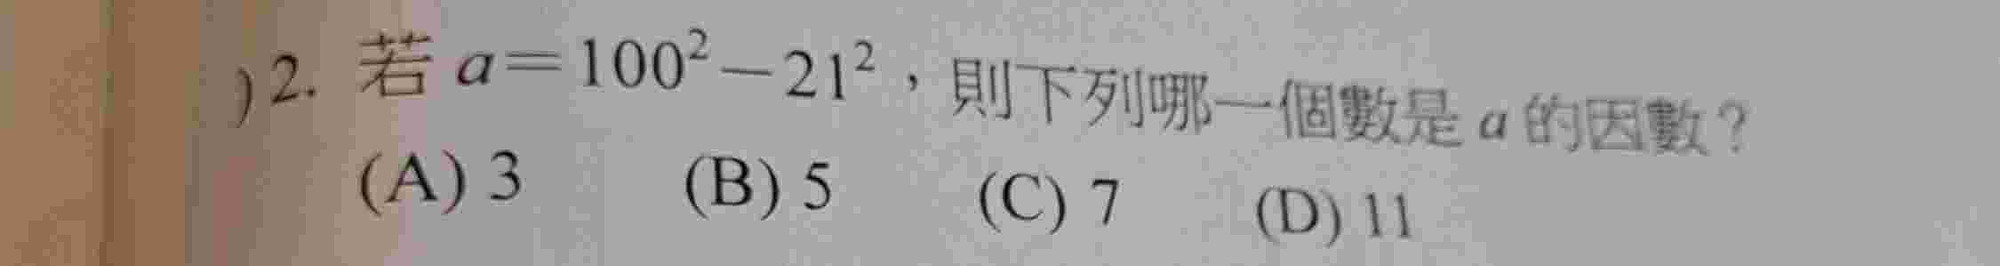 )2. 若 a=100²−21²，則下列哪一個數是 a 的因數？
(A) 3 (B) 5 (C) 7 (D) 11